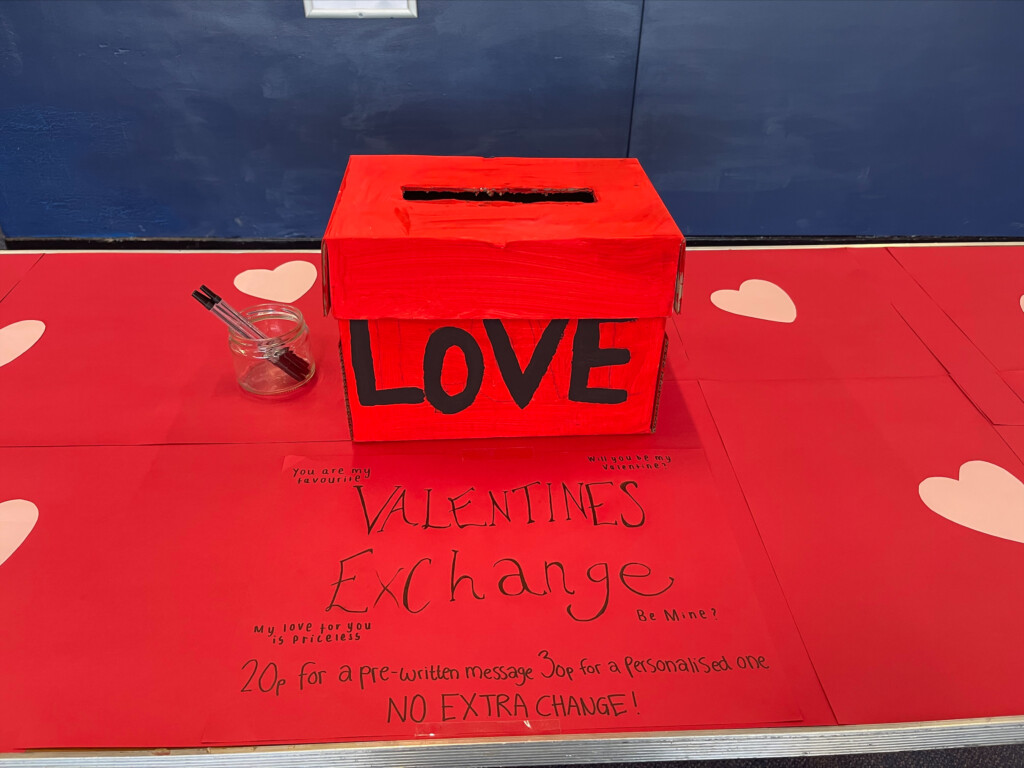 LOVE
You are my
favourite
Will you be my
Valentine?
VALENTINES
Exchange
My love for you
is Priceless
Be Mine?
20p for a pre-written message 30p for a personalised one
NO EXTRA CHANGE!